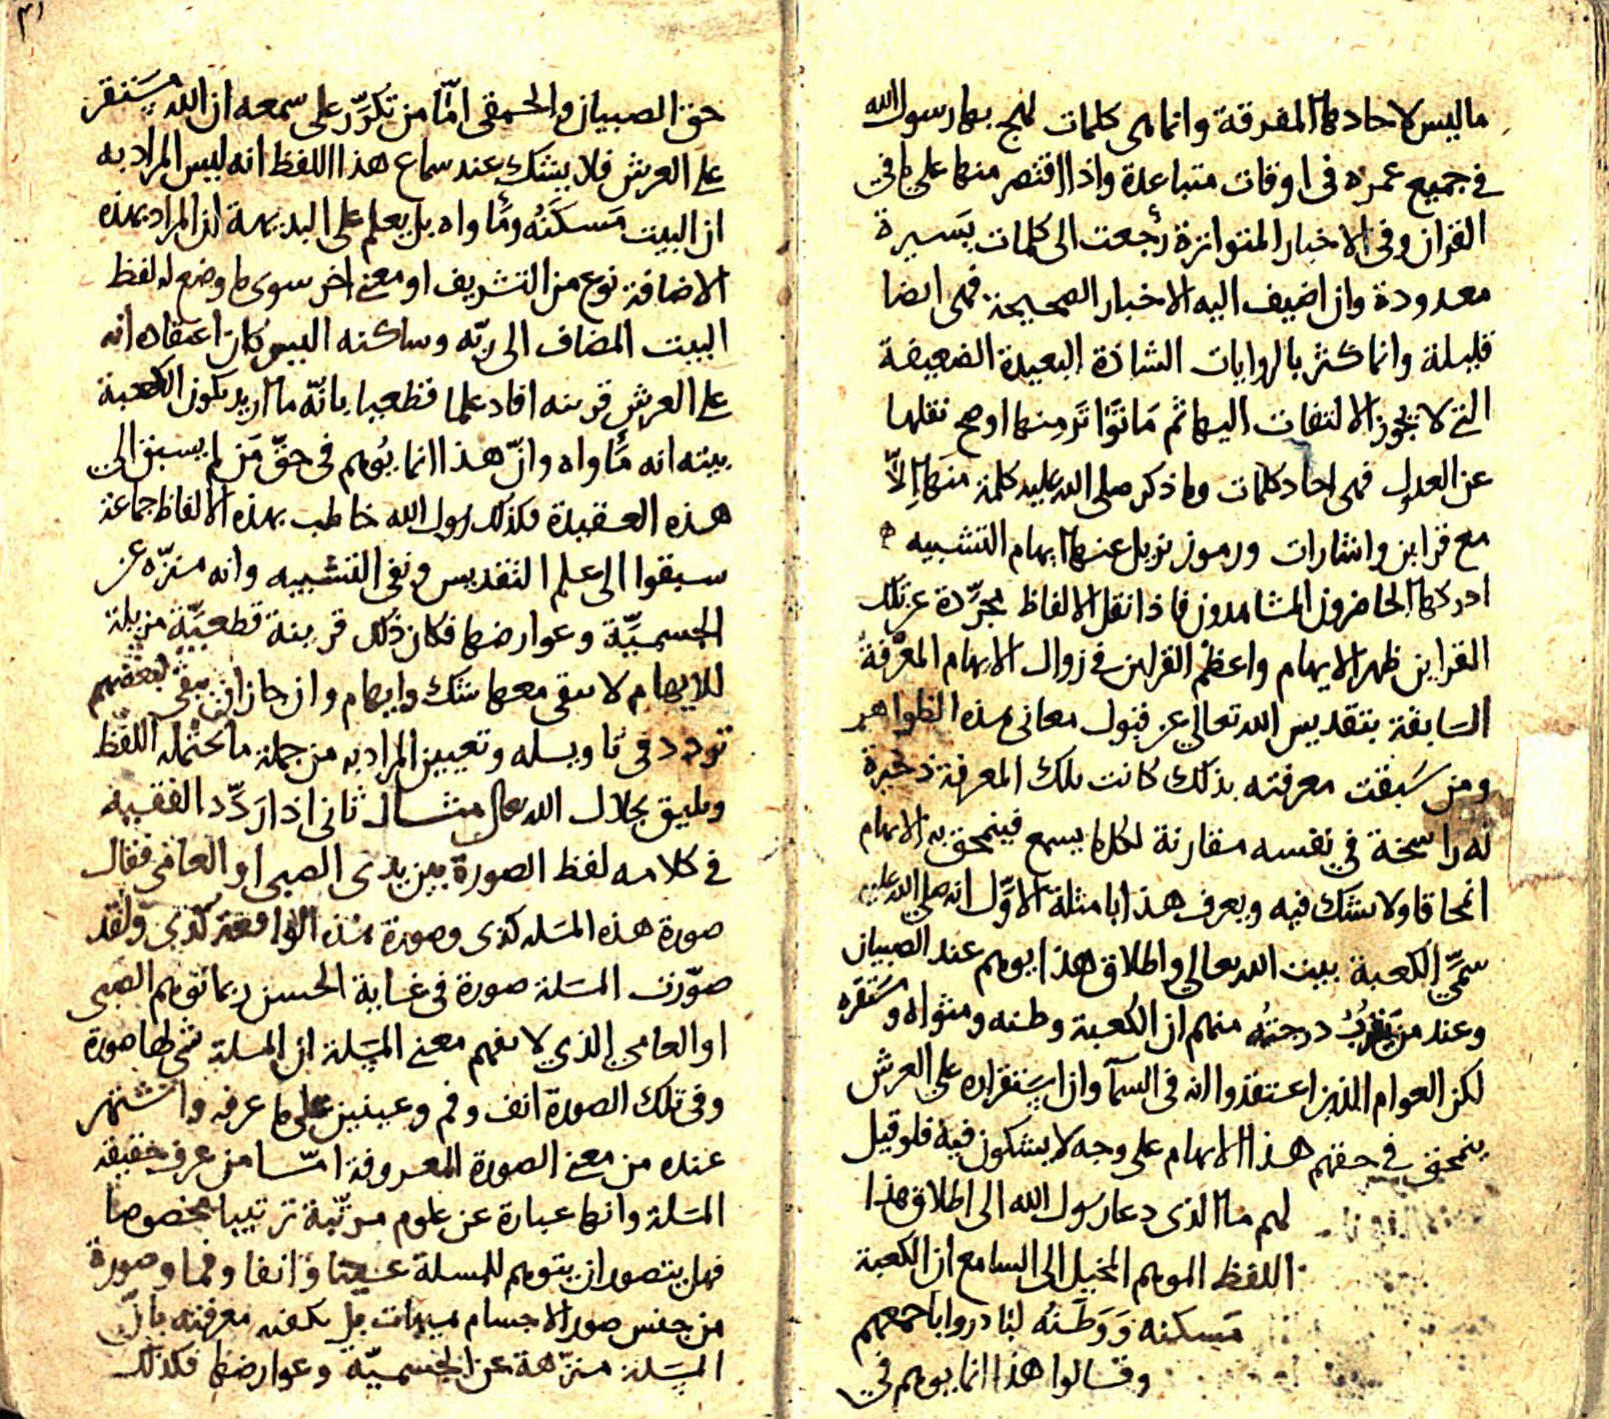 ما ليس لاحادها المفرقة وانما هى كلمات لهج بها رسول الله
في جميع عمره فى اوقات متباعدة واذا اقتصر منها على ما في
القران وفى الاخبار المتواترة رجعت الى كلمات يسيرة
معدودة وان اضيف اليه الاخبار الصحيحة فهى ايضا
قليلة وانما كثر بالروايات الشاذة البعيدة الضعيفة
التي لا يجوز الالتفات اليها ثم ما تواتر منها او صح نقلها
عن العدول فهى احاد كلمات وما ذكر صلى الله عليه كلمة منها الّا
مع قراين واشارات ورموز يزيل عنها ايهام التشبيه
ادركها الحاضرون المشاهدون فاذا نقل الالفاظ مجرّدة عن تلك
القراين ظهر الايهام واعظم القراين في زوال الايهام المعرفة
السابقة بتقديس الله تعالى عن قبول معانى هذه الظواهر
ومن سبقت معرفته بذلك كانت تلك المعرفة ذخيرة
له راسخة في نفسه مقارنة لكل ما يسمع فينمحق به الايهام
انمحاقا ولا يشك فيه ويعرف هذا بامثلة الاوّل انه صلى الله عليه
سمّى الكعبة بيت الله تعالى واطلاق هذا يوهم عند الصبيان
وعند من يقرب درجته منهم ان الكعبة وطنه ومثواه ومستقره
لكن العوام الذين اعتقدوا انه في السمآ وان استقراره على العرش
ينمحق في حقهم هذا الايهام على وجه لا يشكون فيه فلو قيل
لهم ما الذى دعا رسول الله الى اطلاق هذا
اللفظ الموهم المخيل الى السامع ان الكعبة
مسكنه ووطنه لبادروا باجمعهم
وقالوا هذا انما يوهم في
حق الصبيان والحمقى امّا من تكرّر على سمعه ان الله مستقر
على العرش فلا يشك عند سماع هذا اللفظ انه ليس المراد به
ان البيت مسكنه ومأواه بل يعلم على البديهة ان المراد بهذه
الاضافة نوع من التشريف او معنى اخر سوى ما وضع له لفظ
البيت المضاف الى ربّه وساكنه اليس كان اعتقاده انه
على العرش قرينه افاد علما قطعيا بانّه ما اريد بكون الكعبة
بيته انه مأواه وانّ هذا انما يوهم في حقّ من لم يسبق الى
هذه العقيدة فكذلك رسول الله خاطب بهذه الالفاظ جماعة
سبقوا الى علم التقديس ونفى التشبيه وانه منزّه عن
الجسميّة وعوارضها فكان ذلك قرينة قطعيّة مزيلة
للايهام لا يبقى معها شك وايهام وان جاز ان يبقى لبعضهم
تردد فى تاويله وتعيين المراد به من جملة ما يحتمله اللفظ
ويليق بجلال الله تعالى مثال ثانى اذا ردّد الفقيه
في كلامه لفظ الصورة بين يدى الصبى او العامى فقال
صورة هذه المسئله كذى وصورة هذه الواقعة كذى ولقد
صوّرت المسئلة صورة فى غاية الحسن ربما توهم الصبى
او العامى الذي لا يفهم معنى المسئلة ان المسئلة شى لها صورة
وفى تلك الصورة انف وفم وعينين على ما عرفه واشتهر
عنده من معنى الصورة المعروفة امّا من عرف حقيقة
المسئلة وانها عبارة عن علوم مرتّبة ترتيبا مخصوصا
فهل يتصور ان يتوهم للمسئلة عينا وانفا وفما وصورة
من جنس صور الاجسام هيهات بل يكفيه معرفته بانّ
المسئلة منزّهة عن الجسميّة وعوارضها فكذلك